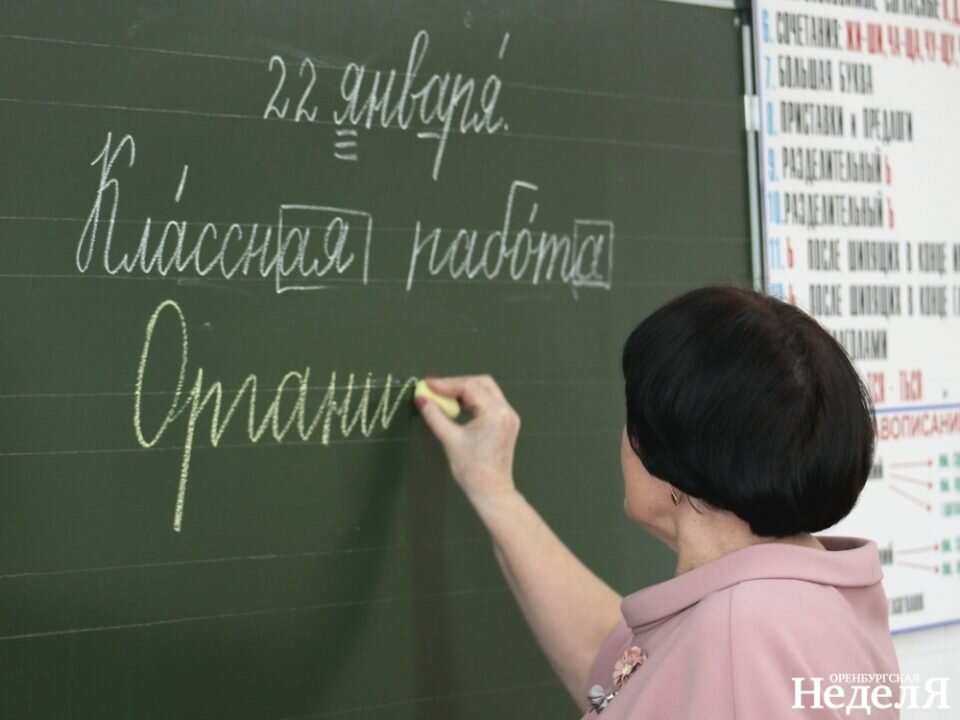 22 января.
Классная работа
Органи
СОГЛАСНЫЕ
6. СОЧЕТАНИЯ: ЖИ-ШИ, ЧА-ЩА, ЧУ-ЩУ,
7. БОЛЬШАЯ БУКВА
8. ПРИСТАВКИ и ПРЕДЛОГИ
9. РАЗДЕЛИТЕЛЬНЫЙ Ь
10. РАЗДЕЛИТЕЛЬНЫЙ Ъ
11. Ь ПОСЛЕ ШИПЯЩИХ В КОНЦЕ
ПОСЛЕ ШИПЯЩИХ В КОНЦЕ
ТЬСЯ
ОРЕНБУРГСКАЯ
НеделЯ